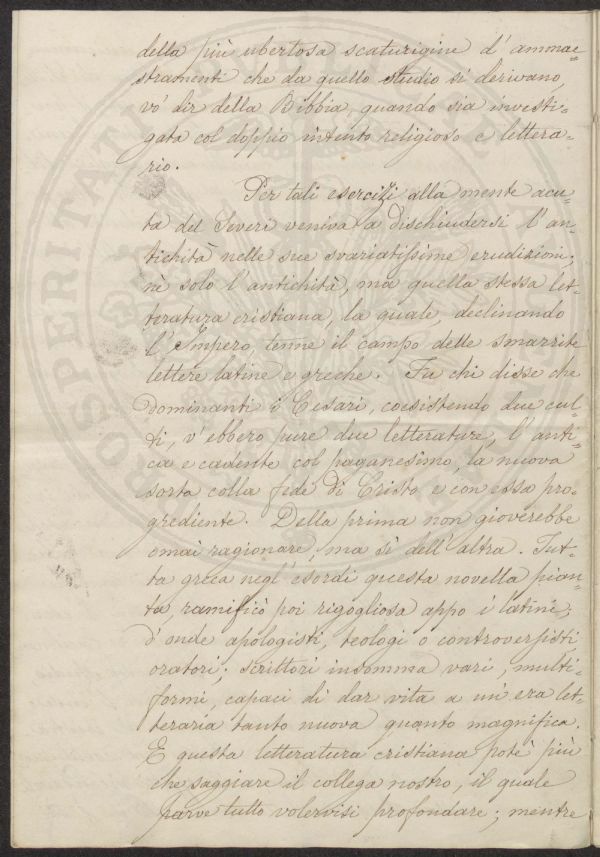 della più ubertosa scaturigine d'ammae=
stramenti che da quello studio si derivano,
vo' dir della Bibbia, quando sia investi=
gata col doppio intento religioso e lettera=
rio.
Per tali esercizj alla mente acu=
ta del Severi veniva a dischiudersi l'an=
tichità nelle sue svariatissime erudizioni;
nè solo l'antichità, ma quella stessa let=
teratura cristiana, la quale, declinando
l'Impero, tenne il campo delle smarrite
lettere latine e greche. Fu chi disse che
dominanti i Cesari, coesistendo due cul=
ti, v'ebbero pure due letterature, l'anti=
ca e cadente col paganesimo, la nuova
sorta colla fede di Cristo e con essa pro=
grediente. Della prima non gioverebbe
omai ragionare, ma sì dell'altra. Tut=
ta greca negl'esordi questa novella pian=
ta, ramificò poi rigogliosa appo i latini;
d'onde apologisti, teologi o controversisti
oratori; scrittori insomma vari, multi=
formi, capaci di dar vita a un'era let=
teraria tanto nuova quanto magnifica.
E questa letteratura cristiana potè più
che saggiare il collega nostro, il quale
parve tutto volervisi profondare; mentre
PROSPERITATI